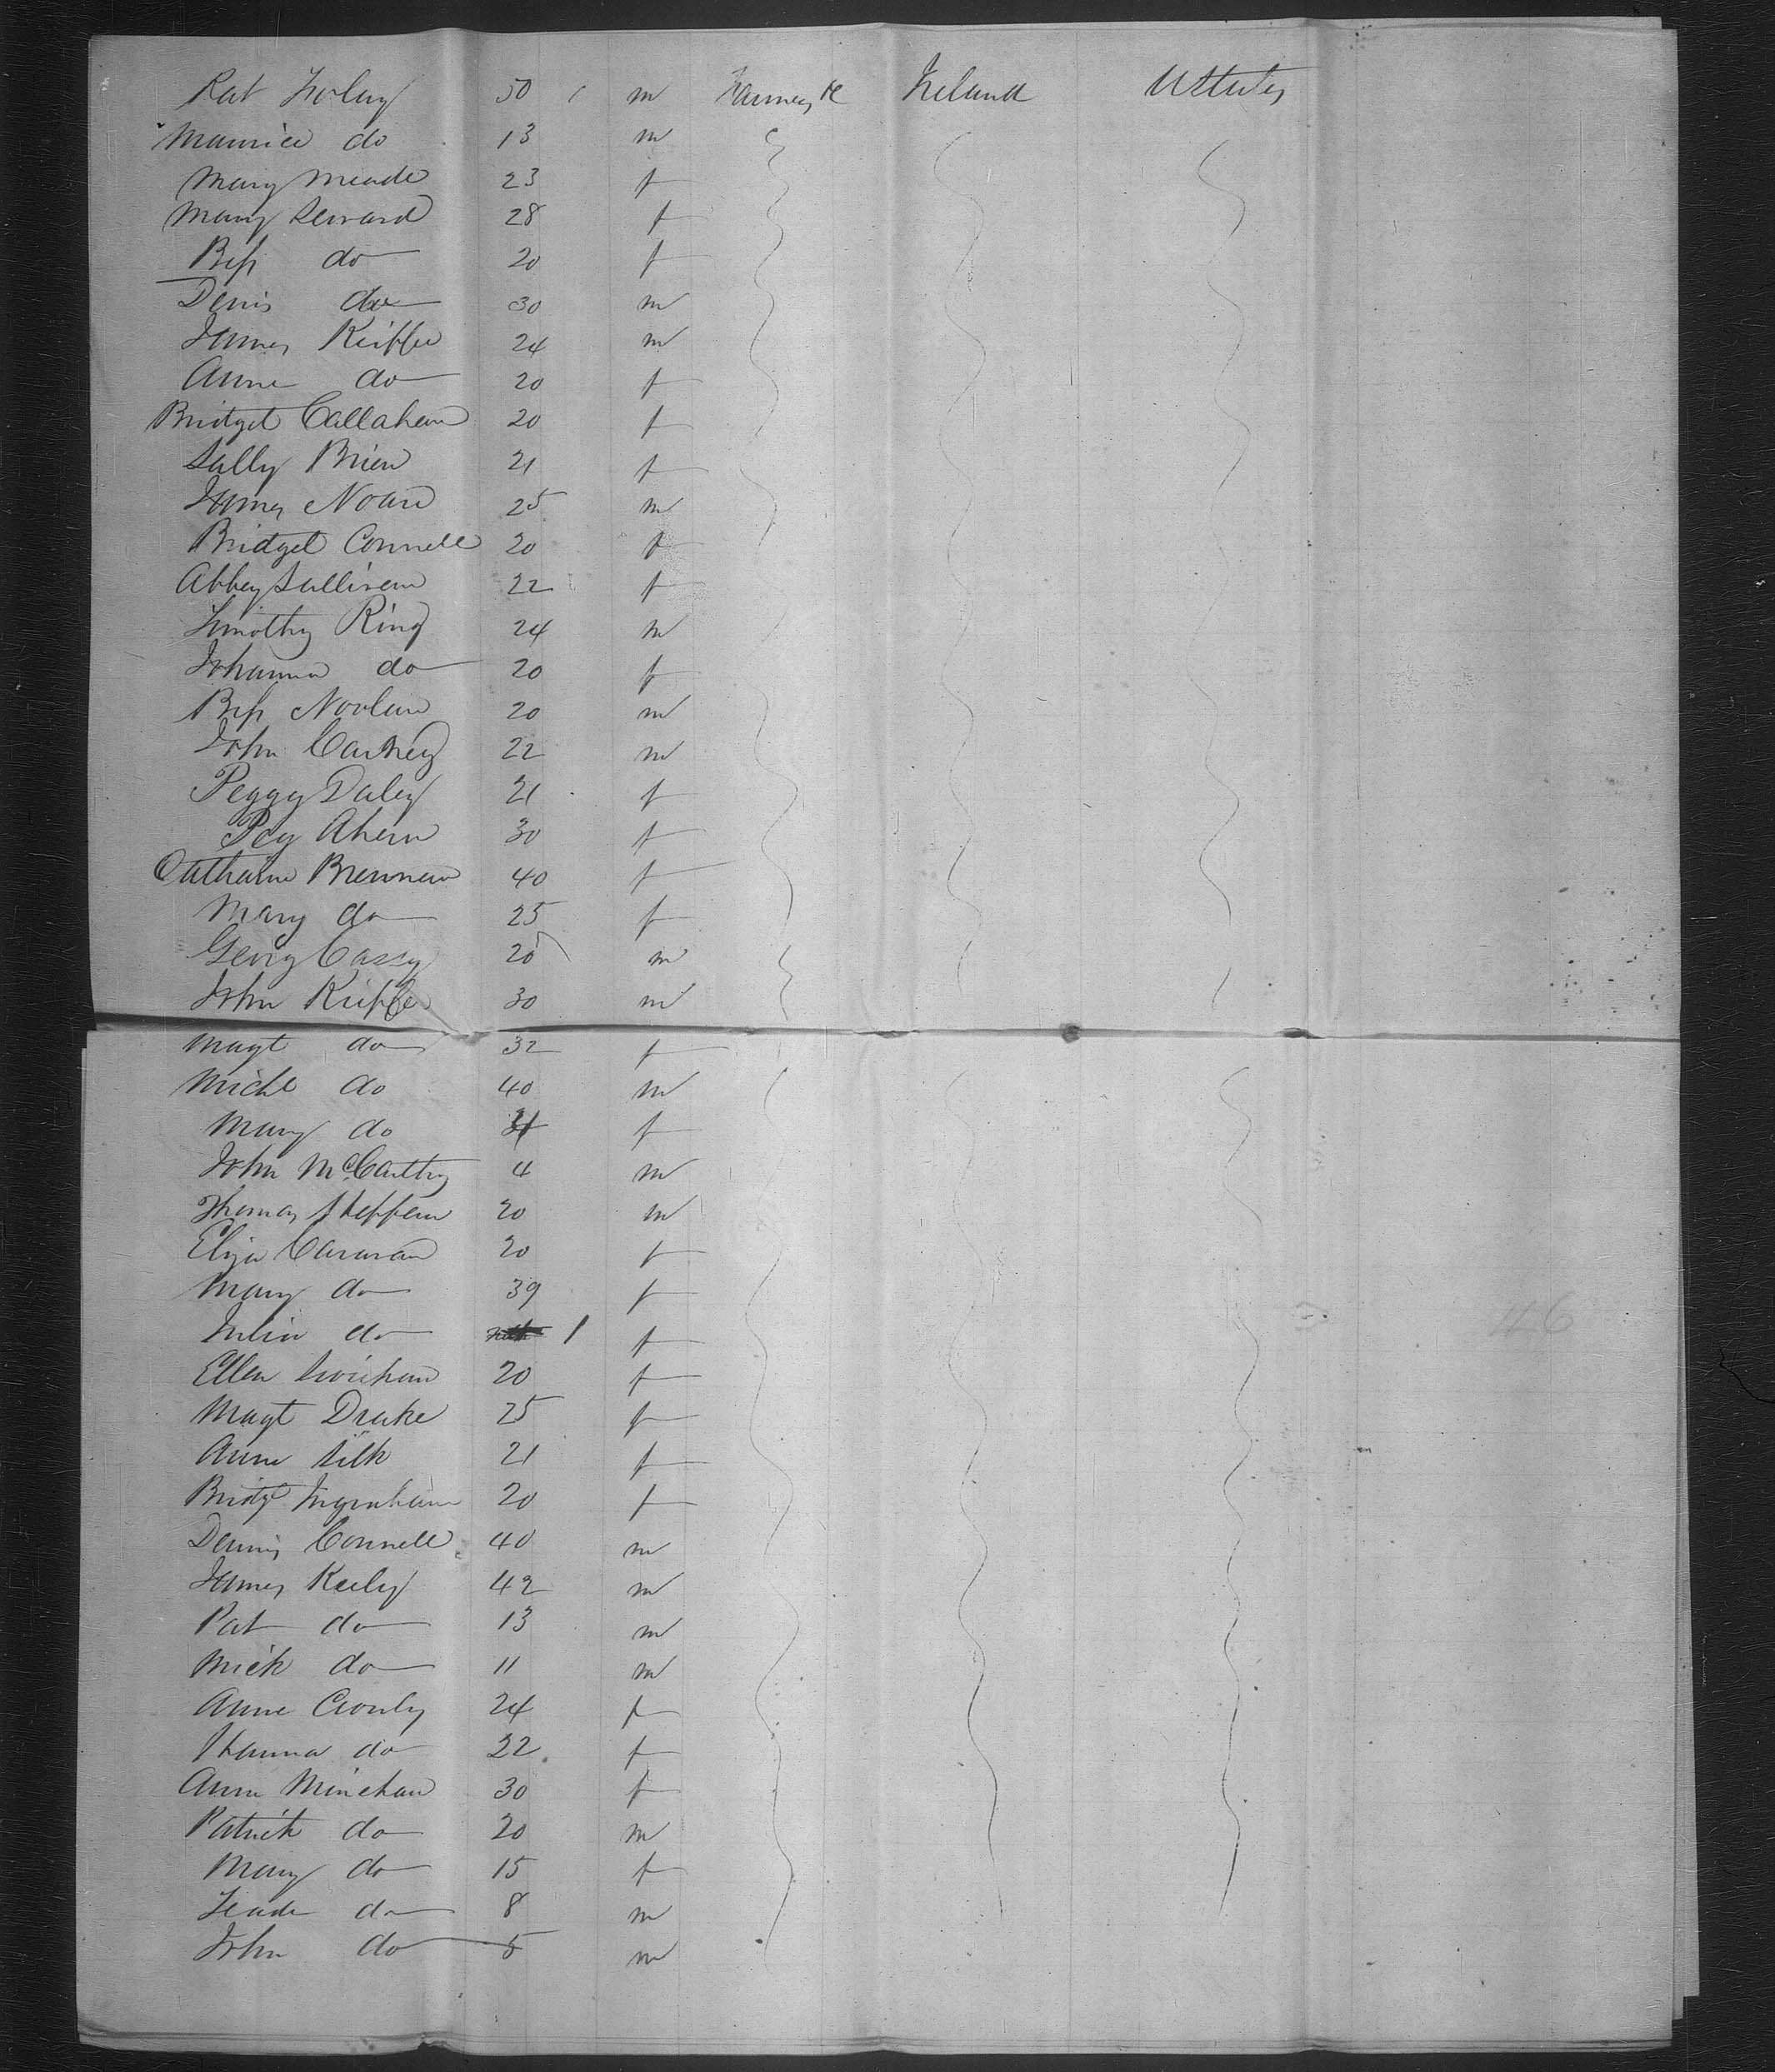 Pat Foley 50 m Farmer &c Ireland U States
Maurice do 13 m
Mary Meade 23 f
Mary Seward 28 f
Bess do 20 f
Denis do 30 m
James Keiffe 24 m
Anne do 20 f
Bridget Callahan 20 f
Sally Brien 21 f
James Noan 25 m
Bridget Connell 20 f
Abbey Sullivan 22 f
Timothy Ring 24 m
Johanna do 20 f
Bess Noolan 20 m
John Carney 22 m
Peggy Daley 21 f
Peg Ahern 30 f
Catharine Brennan 40 f
Mary do 25 f
Georg Cassy 20 m
John Keiffe 30 m
Magt do 32 f
Michl do 40 m
Mary do f
John McCarthy 4 m
Thomas 20 m
Eliza Caravan 20 f
Mary do 39 f
Julia do 1 f
Ellen 20 f
Magt Drake 25 f
Anne Silk 21 f
Bridgt Ingraham 20 f
Dennis Connell 40 m
James Keely 42 m
Pat do 13 m
Mick do 11 m
Anne Cronly 24 f
do 22 f
Anne Minehan 30 f
Patrick do 20 m
Mary do 15 f
do 8 m
John do 5 m
46